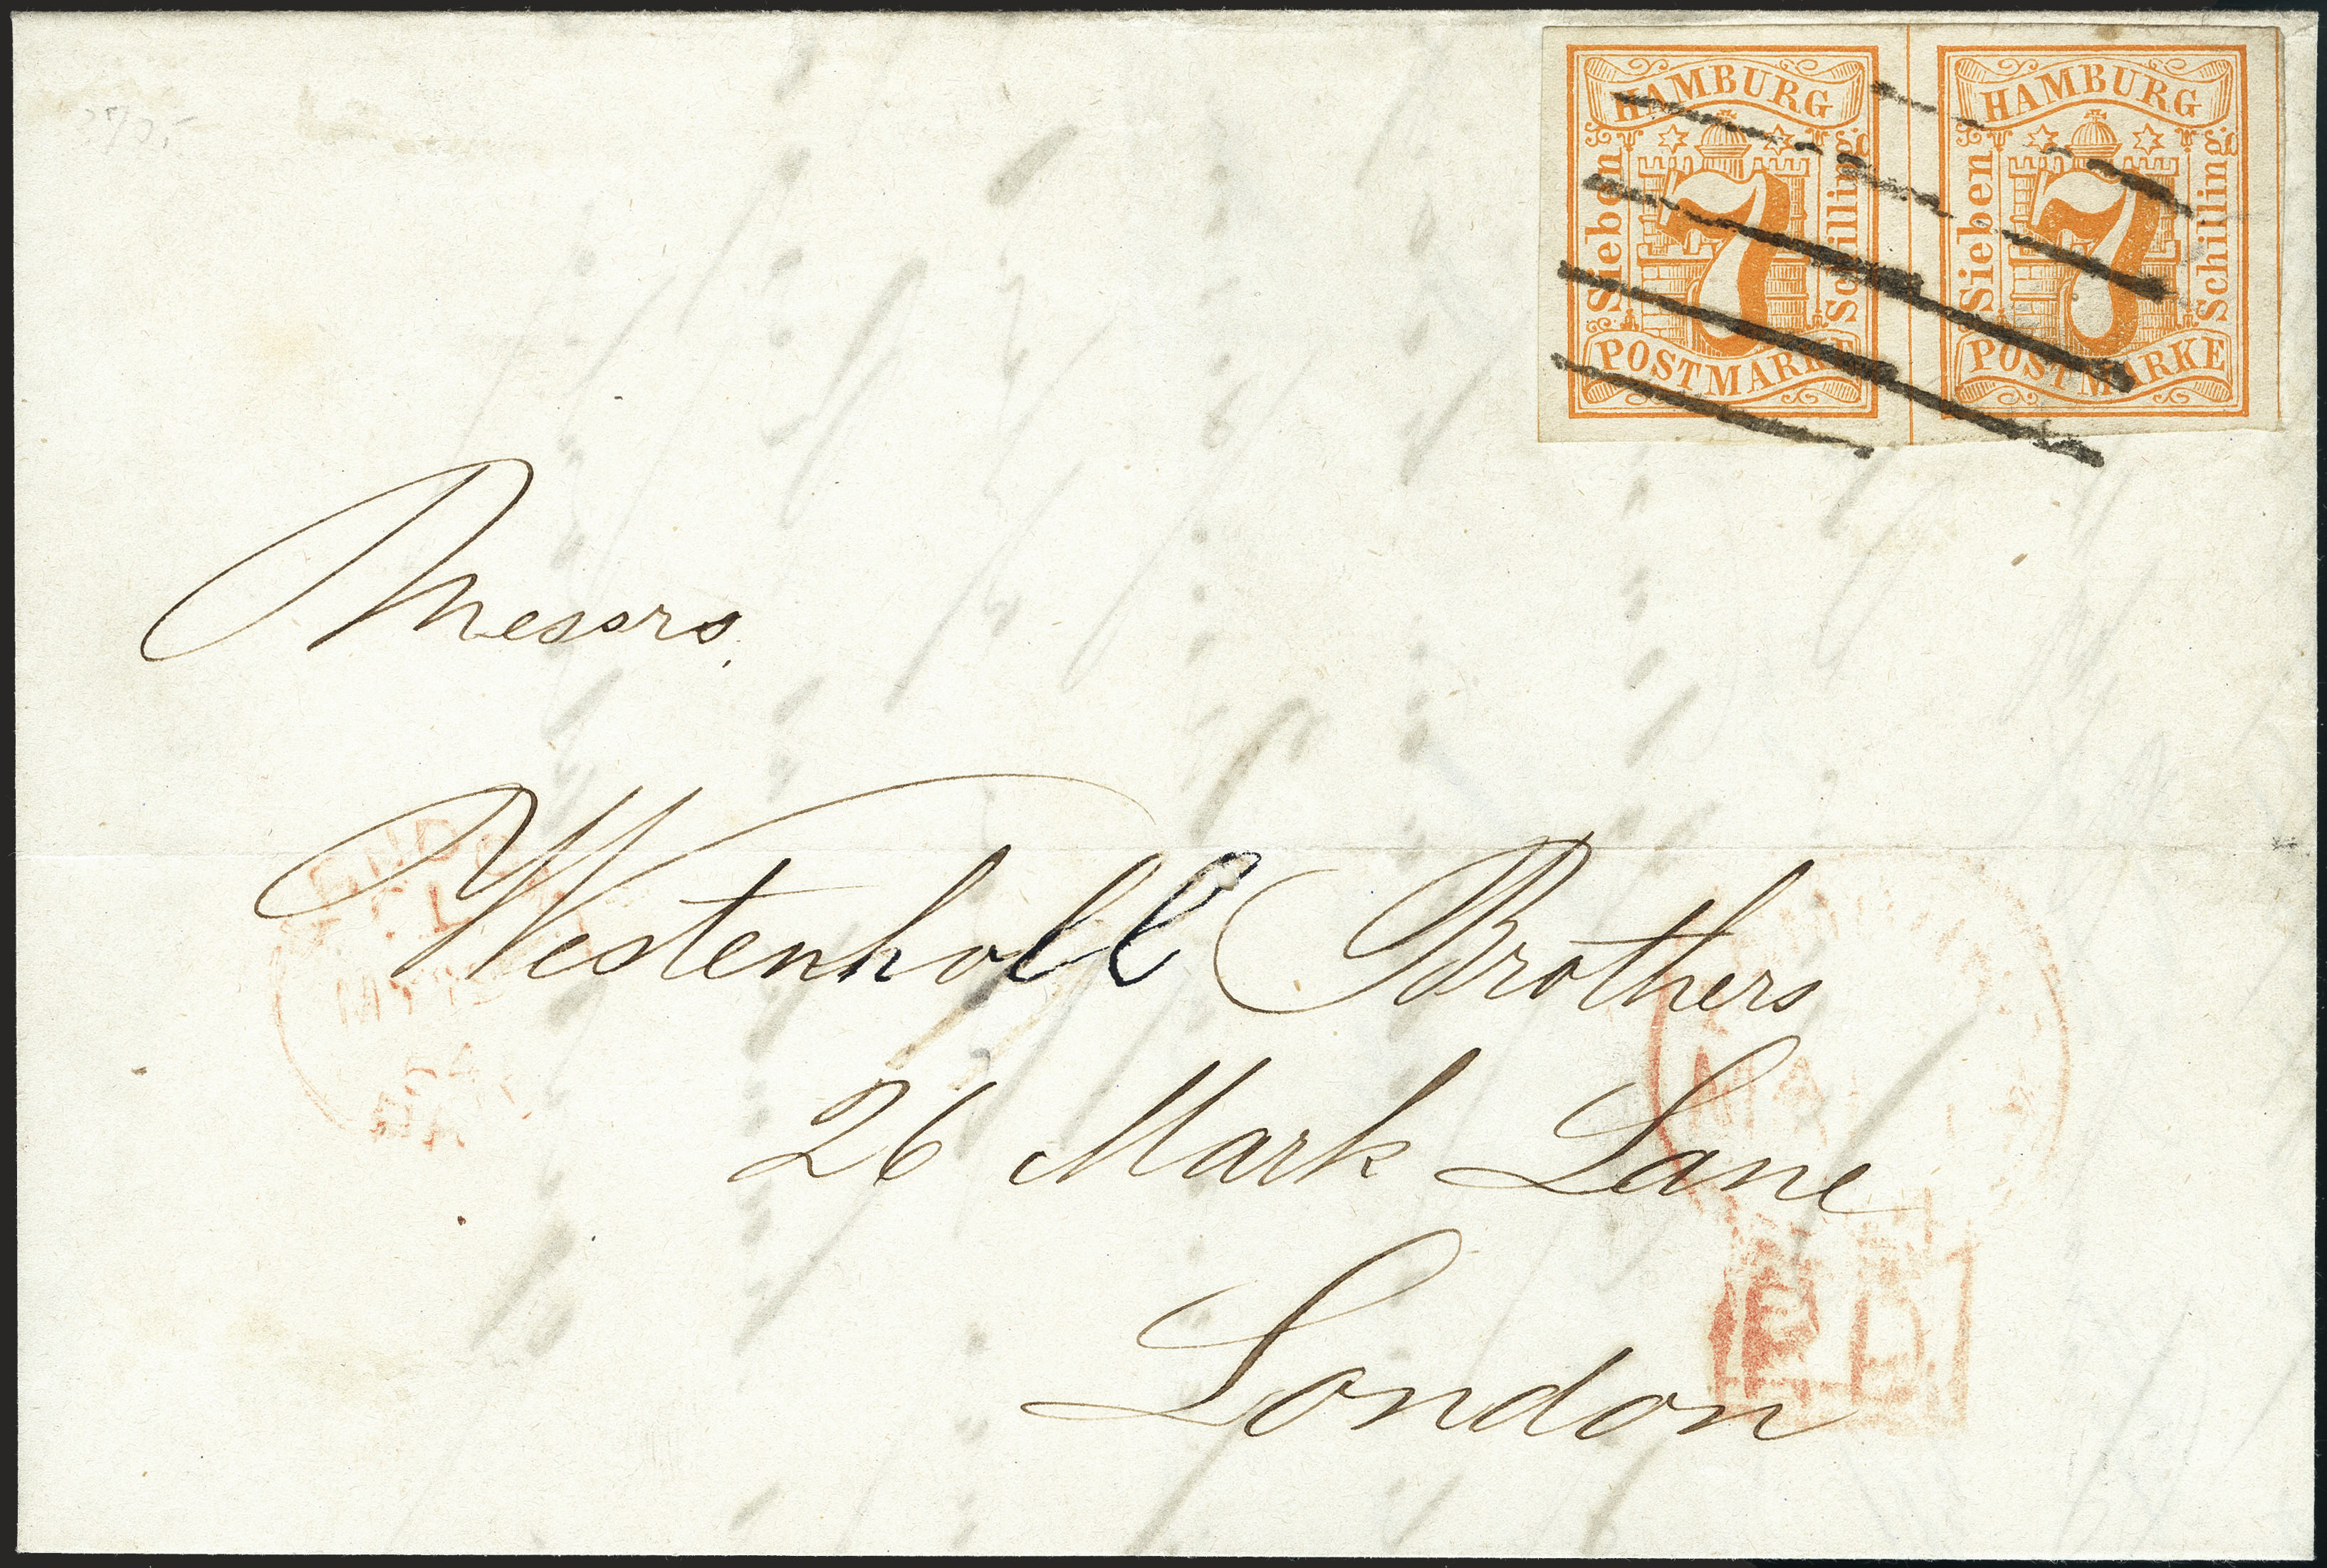 HAMBURG
Sieben
7
Schilling
POSTMARKE
HAMBURG
Sieben
7
Schilling
POSTMARKE
Messrs.
Westenholl Brothers
26 Mark Lane
London
P D